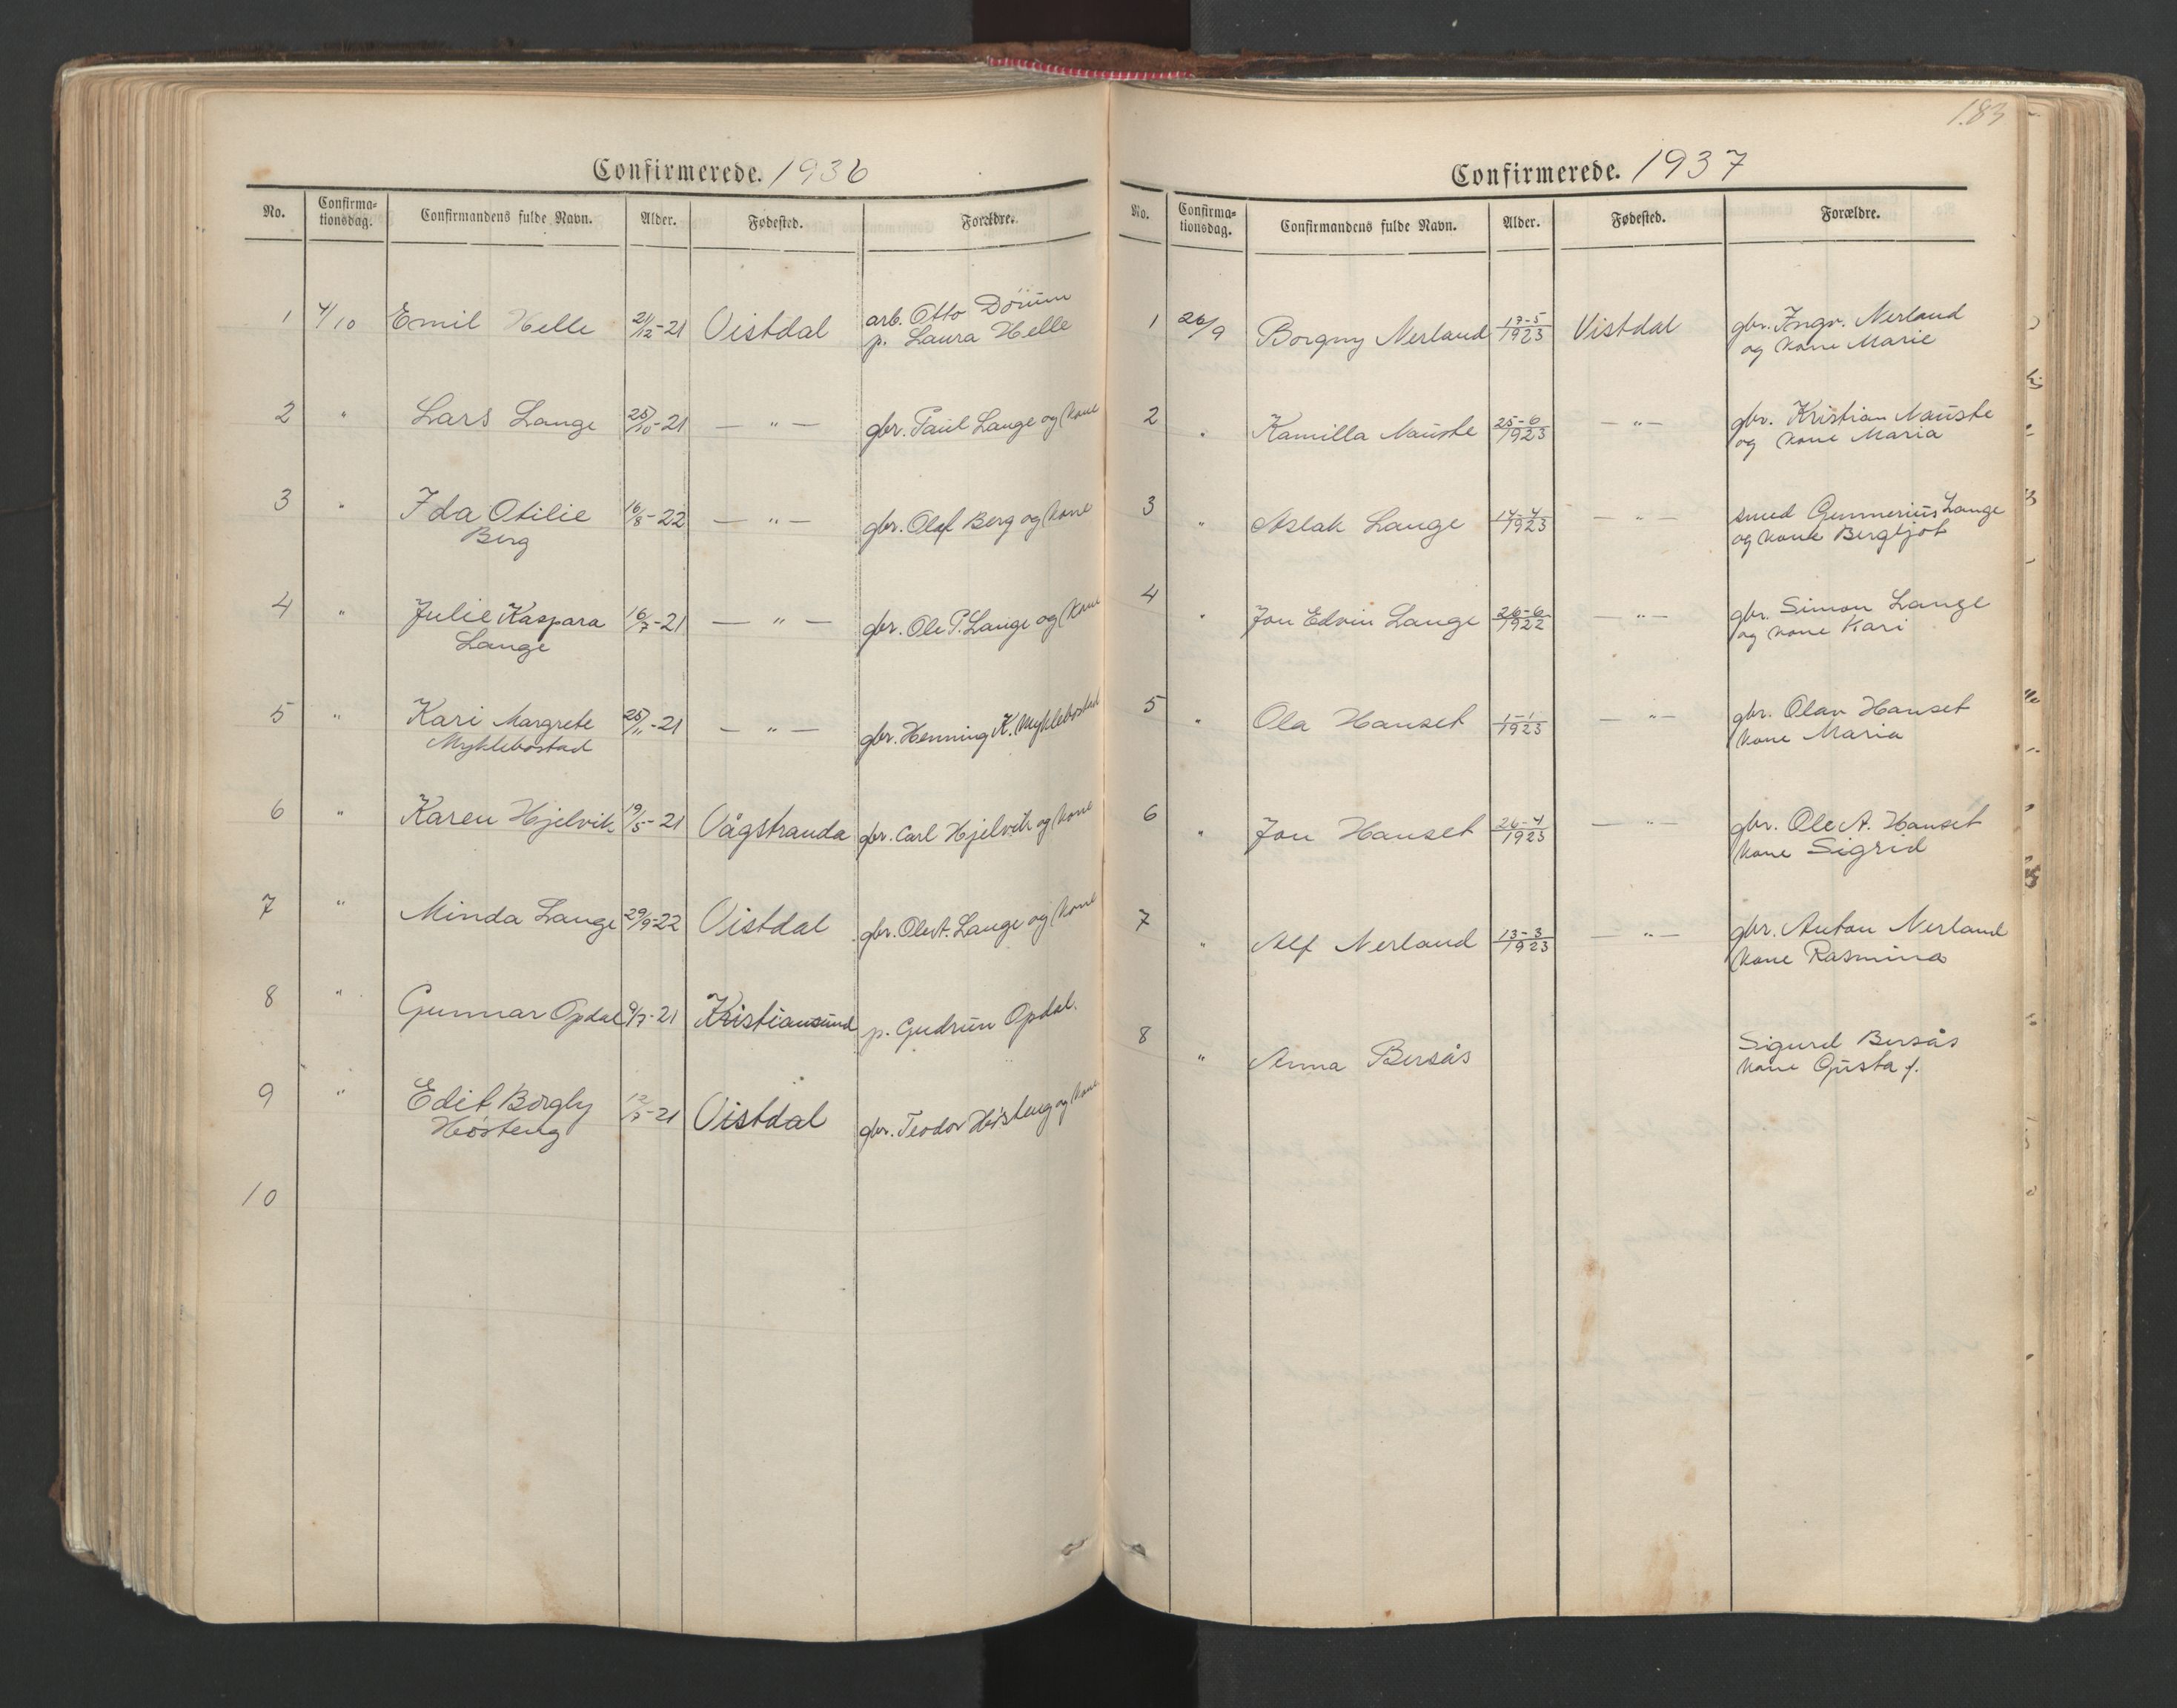 183
Confirmerede. 1936
No. Confirma-tionsdag. Confirmandens fulde Navn. Alder. Fødested. Forældre.
1 4/10 Emil Helle 21/12-21 Vistdal arb. Otto Dørum
p. Laura Helle
2 " Lars Lange 25/10-21 — " — gbr. Paul Lange og kone
3 " Ida Otilie 16/8-22 — " — gbr. Olaf Berg og kone
Berg
4 " Julie Kaspara 16/7-21 — " — gbr. Ole P. Lange og kone
Lange
5 " Kari Margrete 25/11-21 — " — gbr. Henning K. Myklebostad
Myklebostad
6 " Karen Hjelvik 19/5-21 Vågstranda gbr. Carl Hjelvik og kone
7 " Minda Lange 29/9-22 Vistdal gbr. Ole A. Lange og kone
8 " Gunnar Opdal 9/7-21 Kristiansund p. Gudrun Opdal.
9 " Edit Borgly 12/7-21 Vistdal gbr. Teodor Høsteng og kone
Høsteng
10
Confirmerede. 1937
No. Confirma-tionsdag. Confirmandens fulde Navn. Alder. Fødested. Forældre.
1 26/9 Borgny Nerland 17-5/1923 Vistdal gbr. Ingv. Nerland
og kone Marie
2 " Kamilla Nauste 25-6/1923 — " — gbr. Kristian Nauste
og kone Maria
3 " Aslak Lange 14-4/1923 — " — smed Gunnerius Lange
og kone Bergljot
4 " Jon Edvin Lange 26-6/1922 — " — gbr. Simon Lange
og kone Kari
5 " Ola Hanset 1-1/1923 — " — gbr. Olav Hanset
kone Maria
6 " Jon Hanset 26-4/1923 — " — gbr. Ole A. Hanset
kone Sigrid
7 " Alf Nerland 13-3/1923 — " — gbr. Anton Nerland
kone Rasmina
8 " Anna Bersås Sigurd Bersås
kone Gusta f.